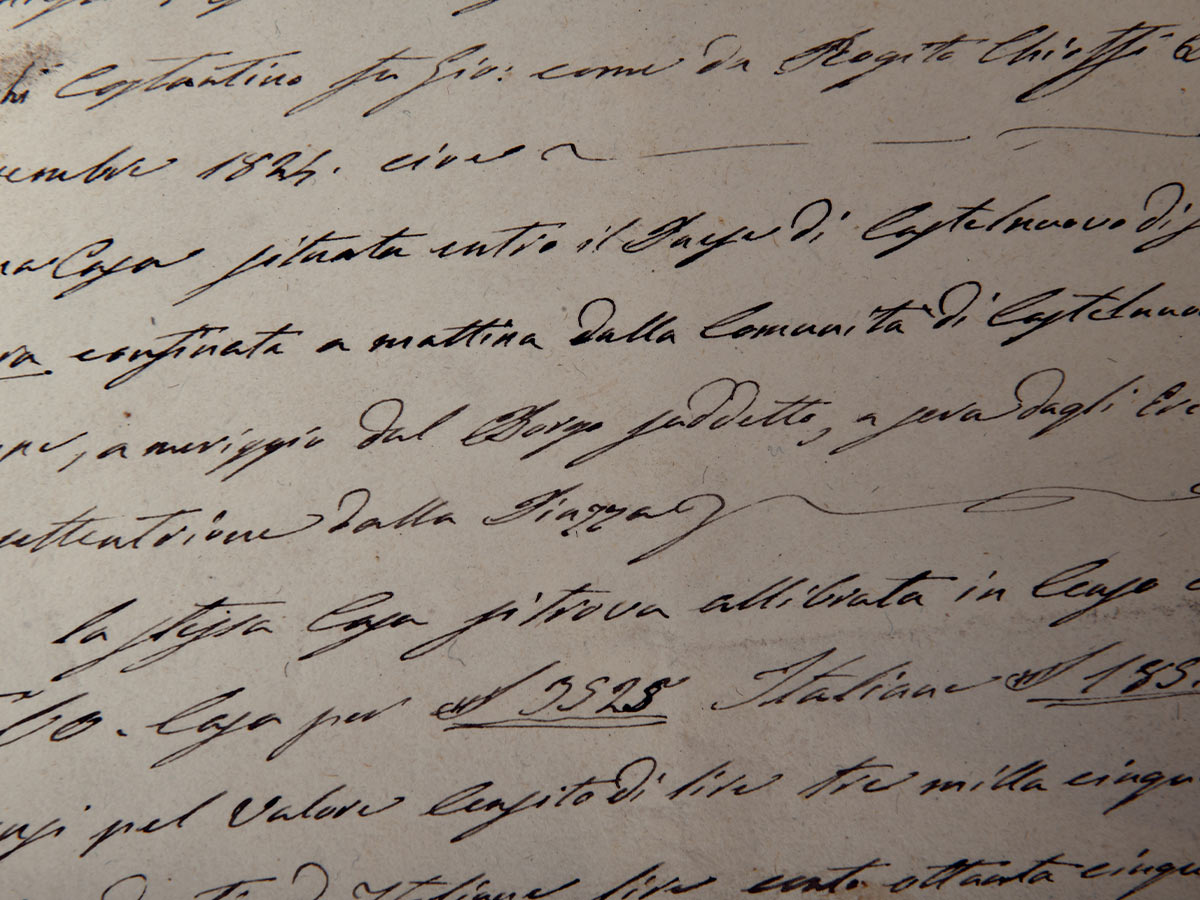 hi Costantino fu Gio: come da Rogito Chioffi
cembre 1824. cioe
na Casa situata entro il Paese di Castelnuovo di
ra confinata a mattina dalla Comunità di Castelnuo
a meriggio dal Borgo suddetto, a sera dagli Ere
settentrione dalla Piazza
la stessa Casa si trova allibrata in Censo
Casa per 3525 Italiane
pel Valore Censito di lire tre milla cinqu
Italiane lire cento ottanta cinqu